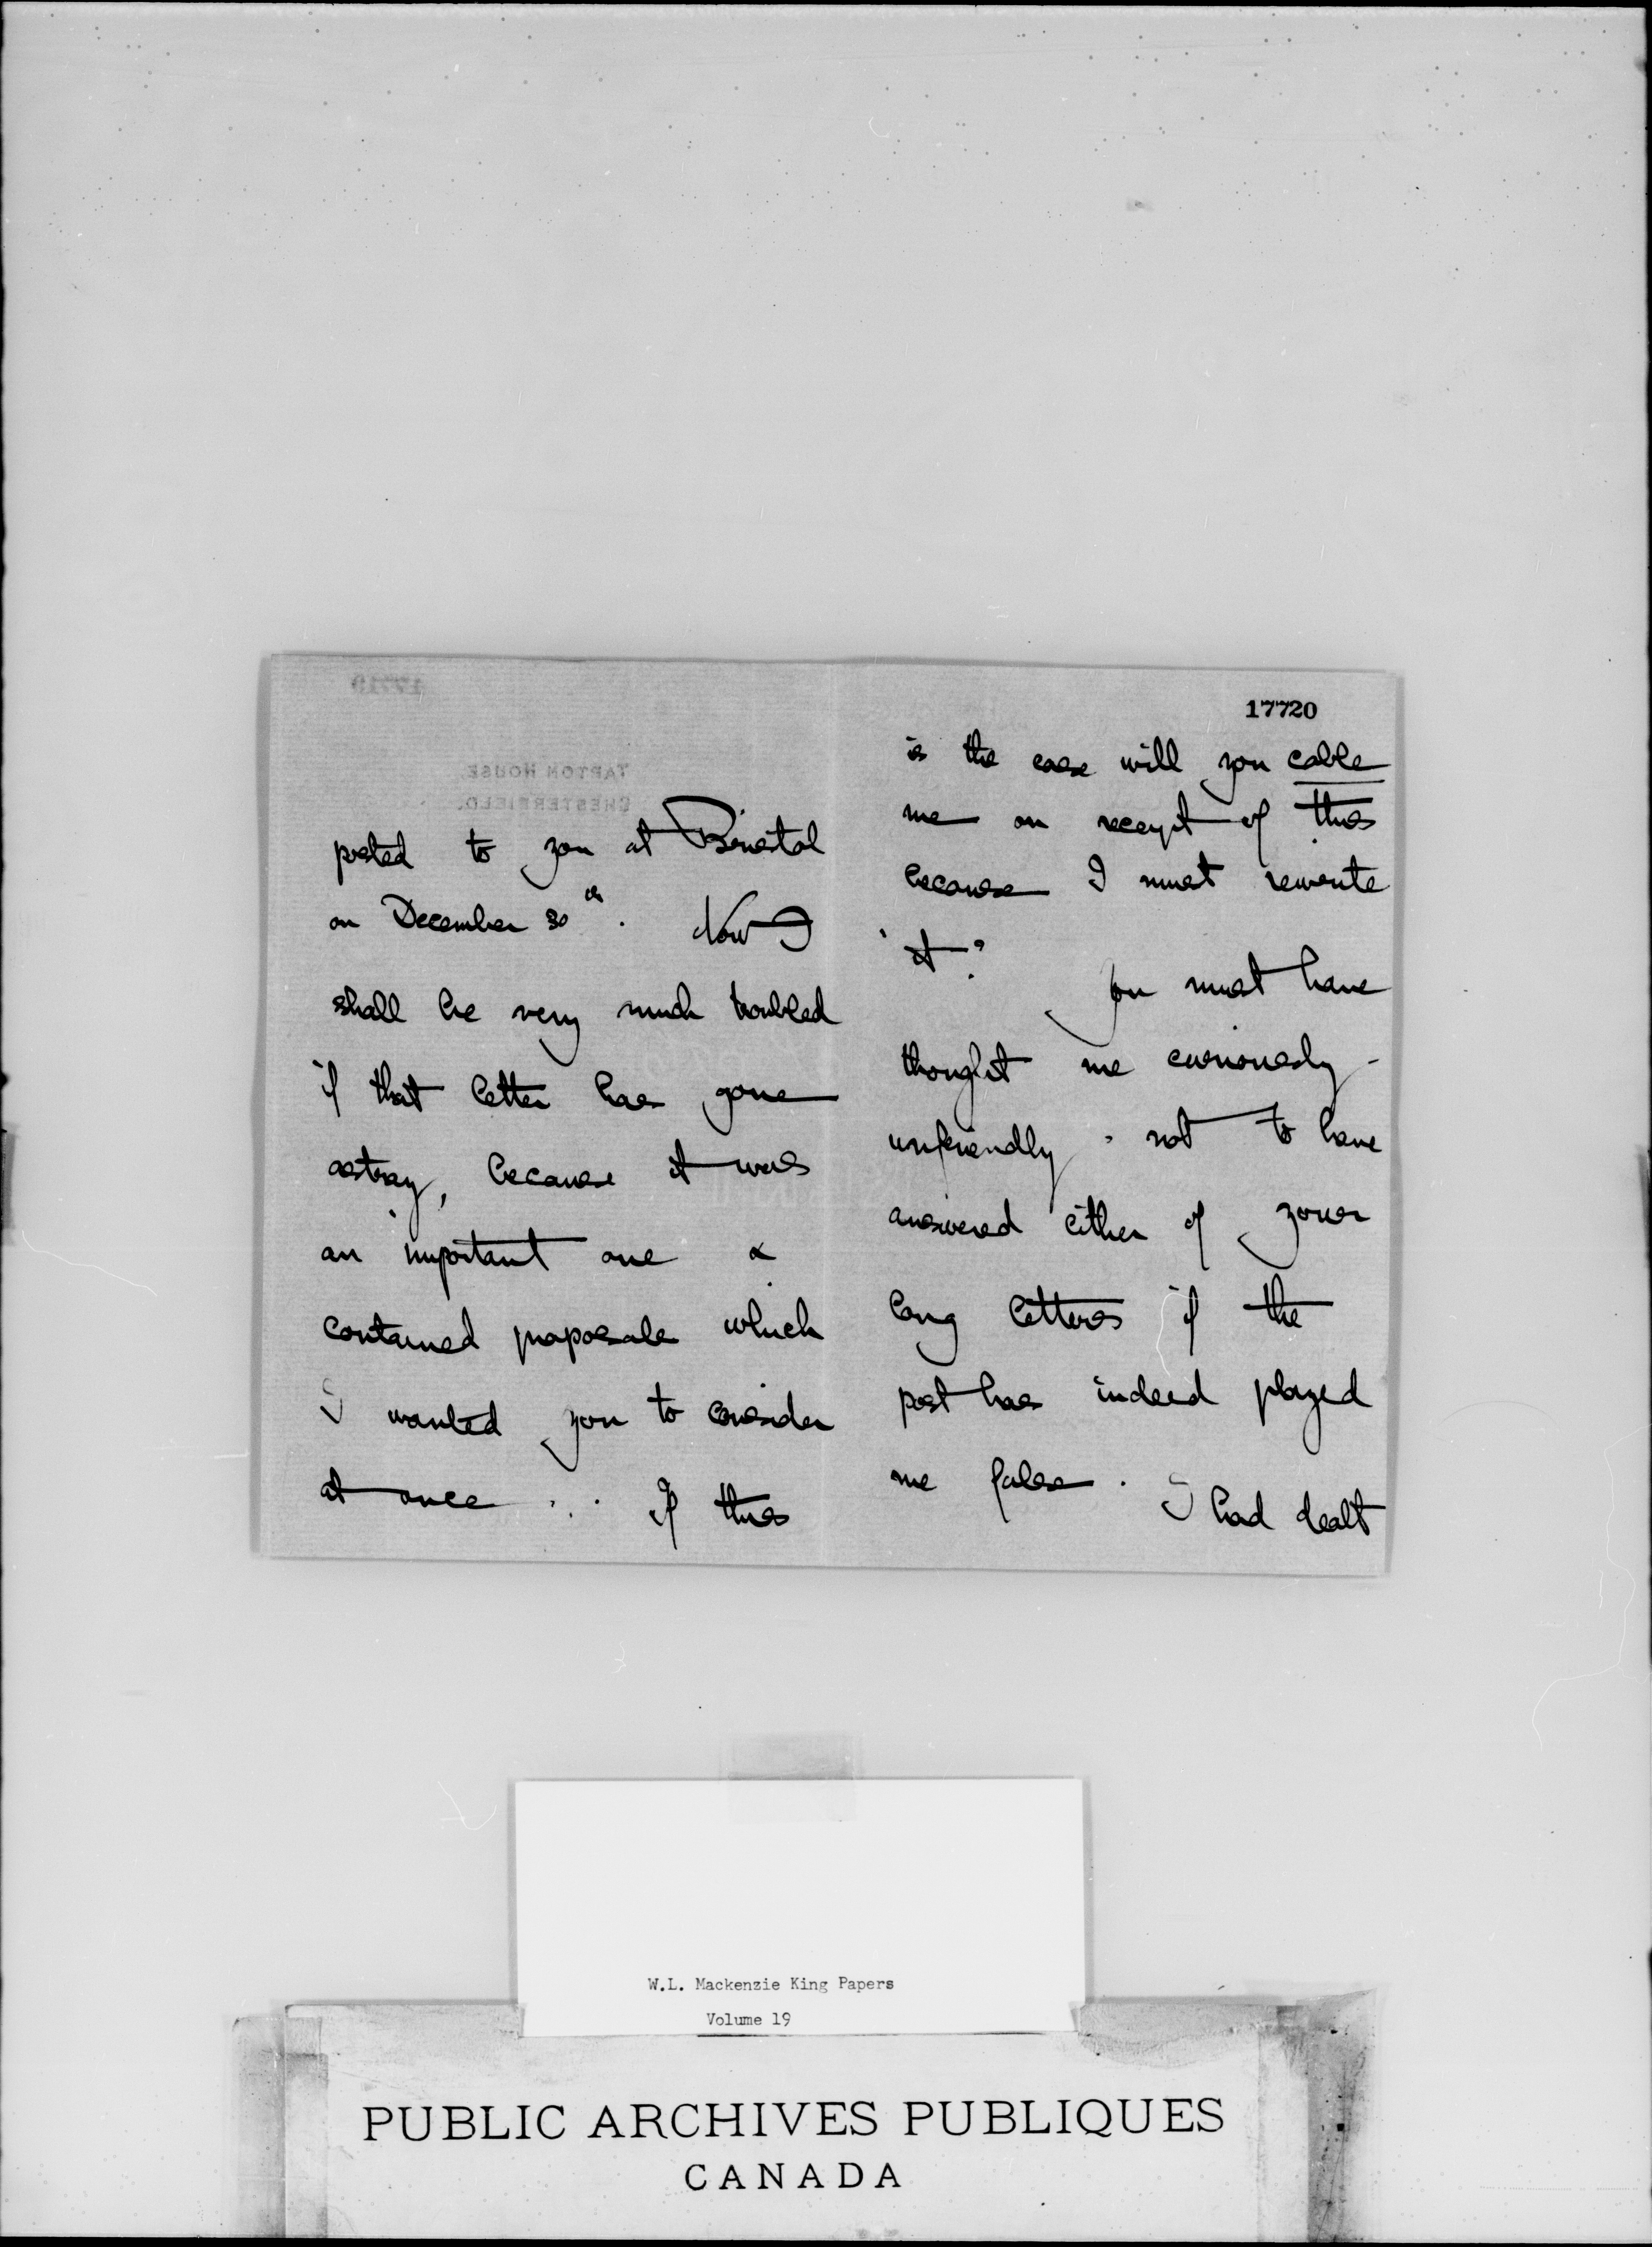 posted to you at Bristol
on December 30th. Now I
shall be very much troubled
if that letter has gone
astray, because it was
an important one &
contained proposals which
I wanted you to consider
at once . . . If this
17720
is the case will you cable
me on receipt of this
because I must rewrite
it?
You must have
thought me curiously
unfriendly not to have
answered either of your
long letters if the
post has indeed played
me false. I had dealt
17719
TAPTON HOUSE,
CHESTERFIELD.
W.L. Mackenzie King Papers
Volume 19
PUBLIC ARCHIVES PUBLIQUES
CANADA